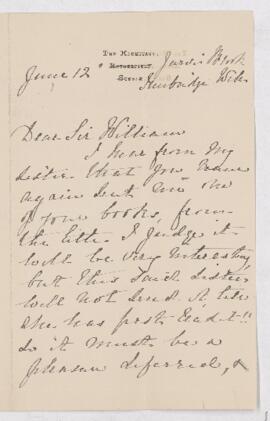 The Hermitage,
Rotherfield,
Sussex
Jarvis Brook
Tunbridge Wells
June 12
Dear Sir William
I hear from my
sister that you have
again sent me one
of your books, from
the title I judge it
will be very interesting
but this said sister
will not send it, till
she has first read it!!
so it must be a
pleasure deferred, &